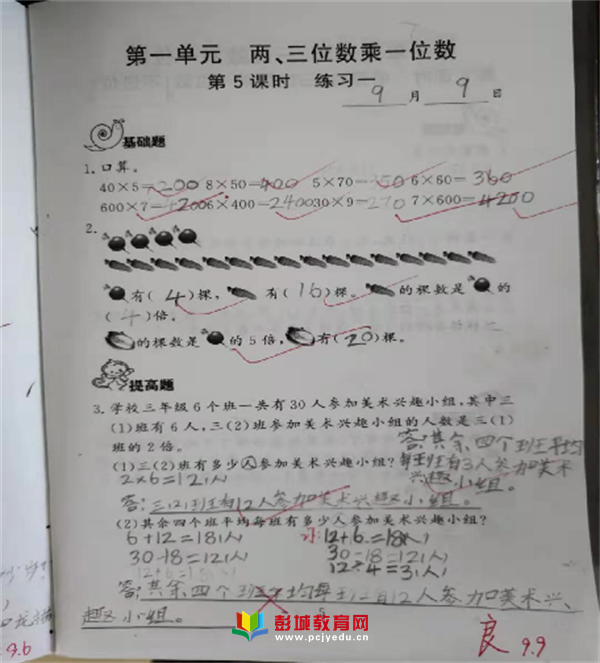 第一单元 两、三位数乘一位数
第5课时 练习一
9月9日
基础题
1.口算。
40×5=200 8×50=400 5×70=350 6×60=360
600×7=4200 6×400=2400 30×9=270 7×600=4200
2.
有(4)棵, 有(16)棵。 的棵数是 的
(4)倍。
的棵数是 的5倍, 有(20)棵。
提高题
3.学校三年级6个班一共有30人参加美术兴趣小组,其中三
(1)班有6人,三(2)班参加美术兴趣小组的人数是三(1)
班的2倍。
(1)三(2)班有多少人参加美术兴趣小组?
2×6=12(人)
答:三(2)班有12人参加美术兴趣小组。
(2)其余四个班平均每班有多少人参加美术兴趣小组?
6+12=18(人)
30-18=12(人)
答:其余四个班平均每班有12人参加美术兴
趣小组。
订:12+6=18(人)
30-18=12(人)
12÷4=3(人)
答:其余四个班平均
每班有3人参加美术
兴趣小组。
5
良 9.9
9.6
彭城教育网
www.pcjyedu.cn